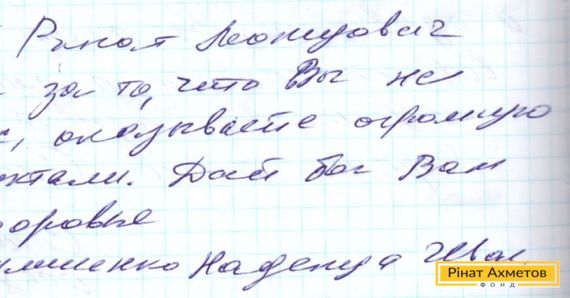 Ринат Леонидович
за то, что Вы не
, оказываете огромную
ктами. Дай бог Вам
оровье
именко Надежда Иван
Рінат Ахметов
ФОНД